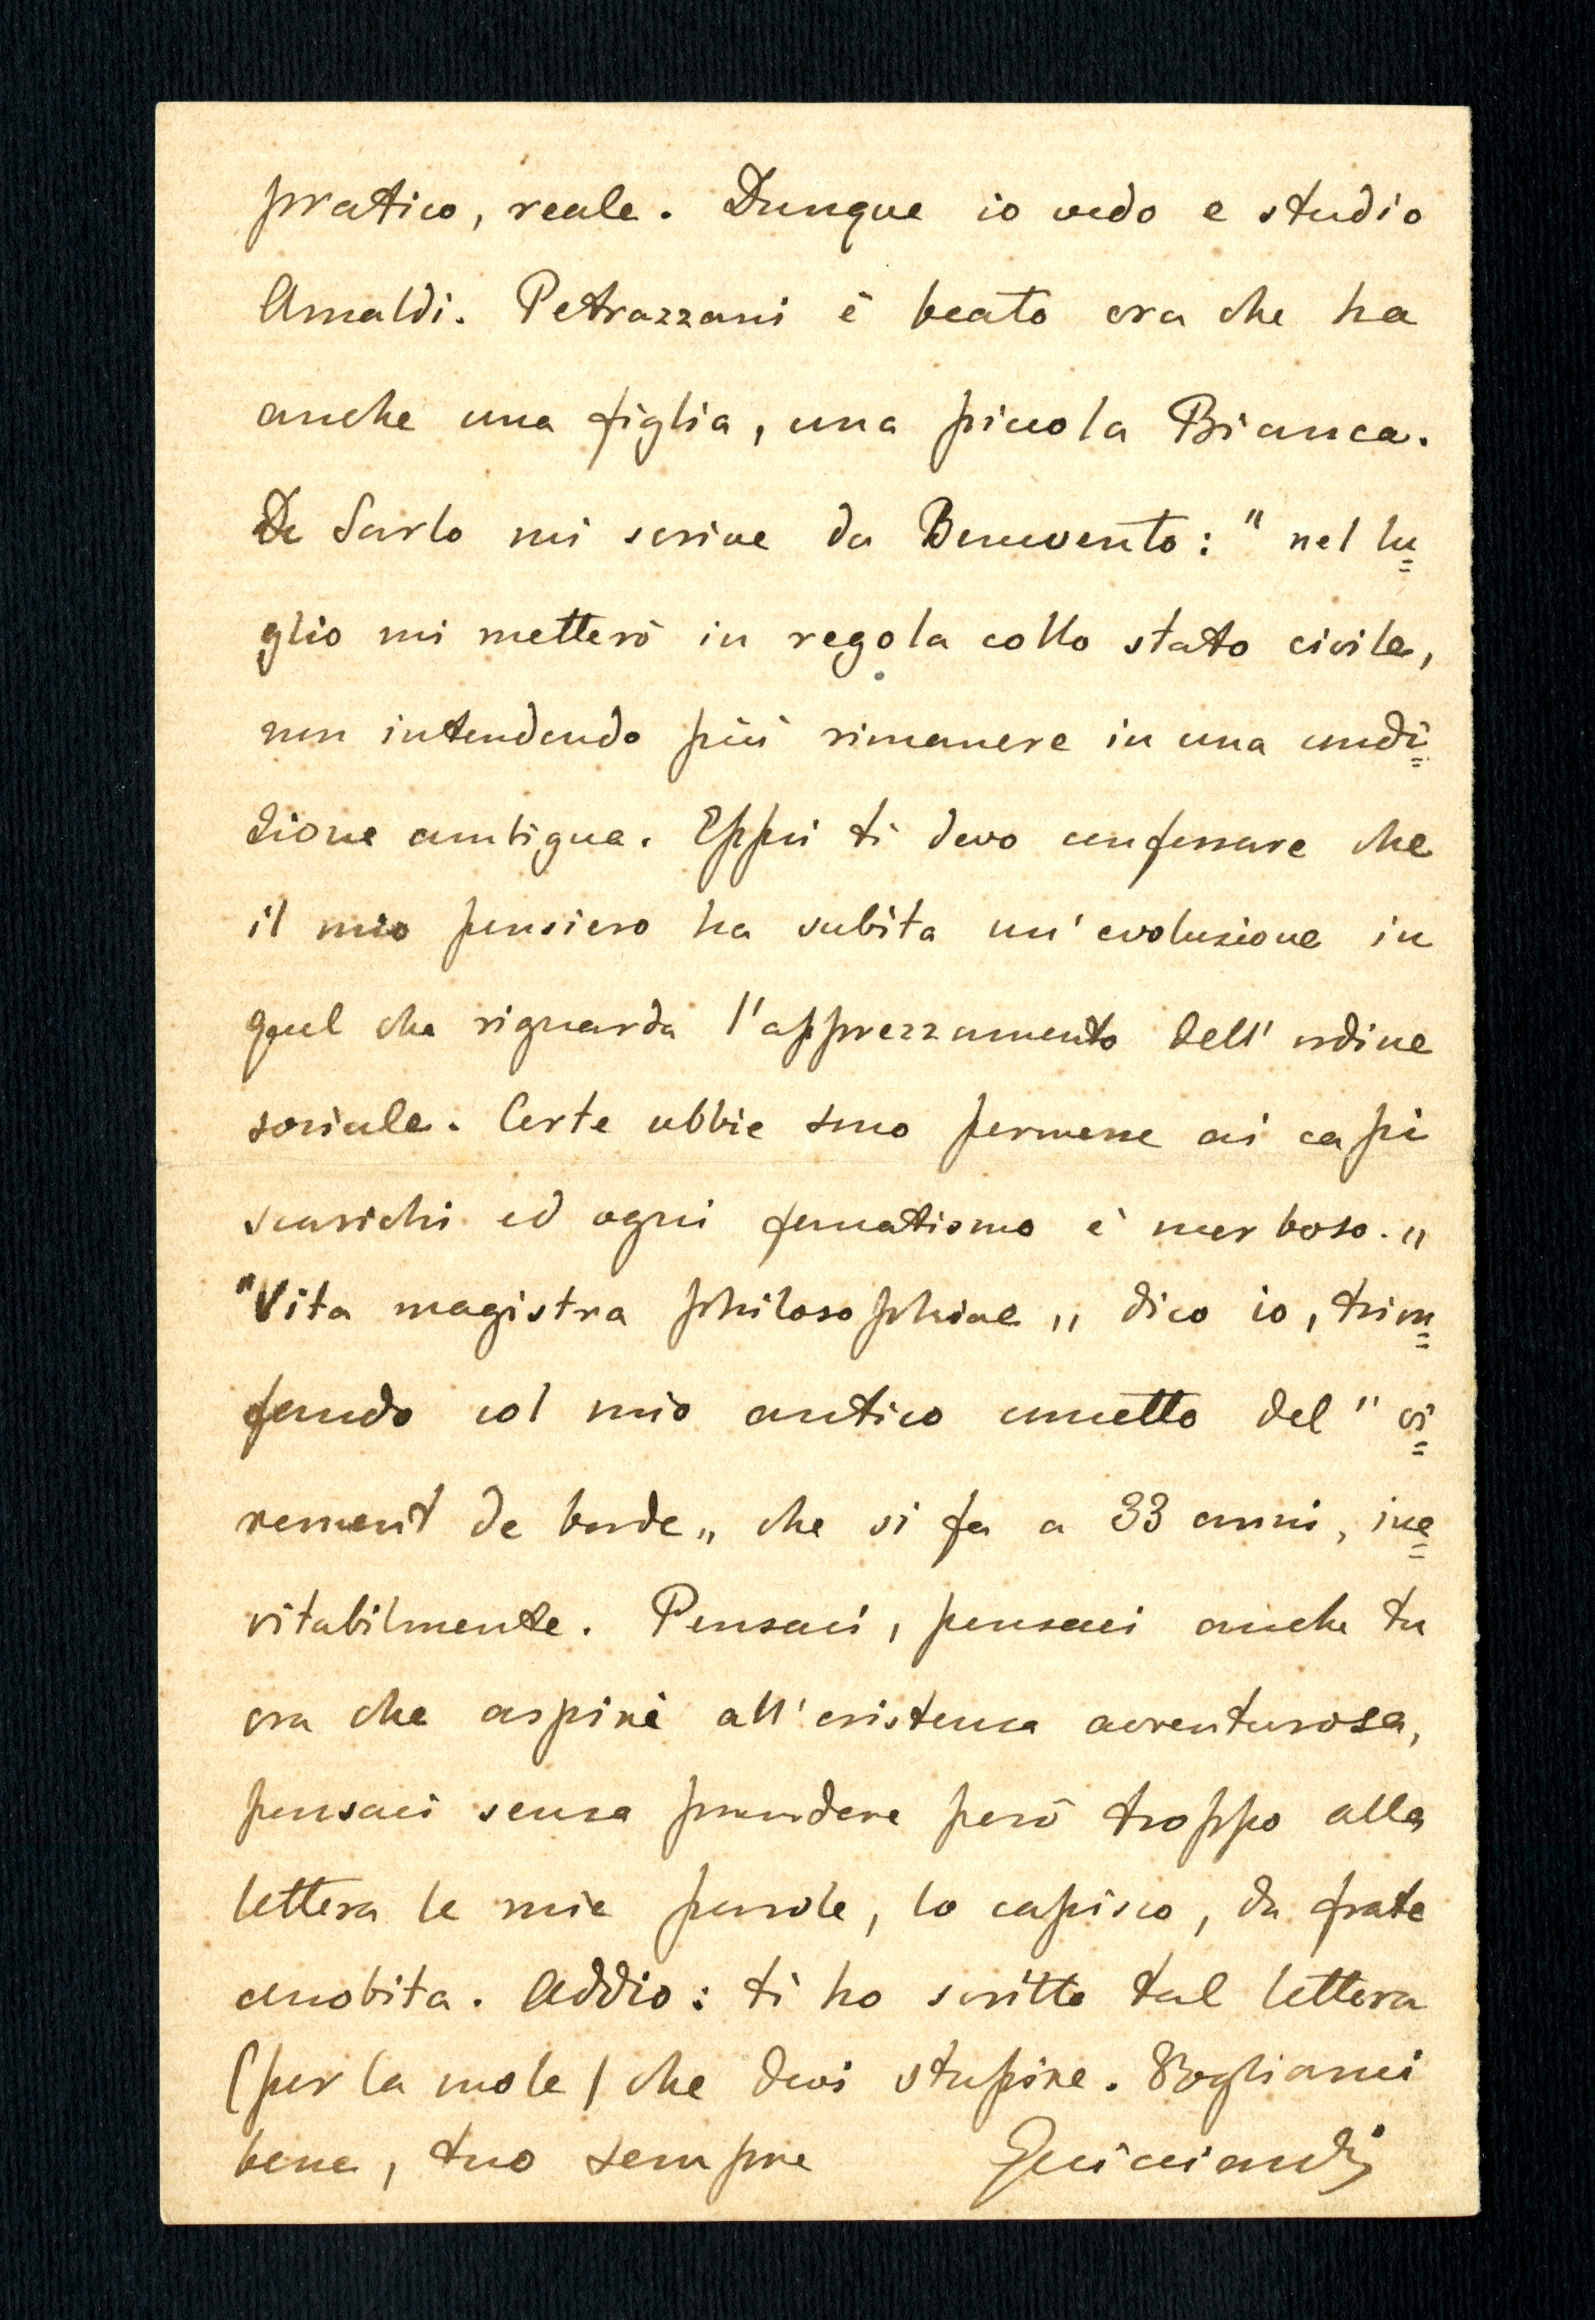 pratico, reale. Dunque io vedo e studio
Amaldi. Petrazzani è beato ora che ha
anche una figlia, una piccola Bianca.
De Sarlo mi scrive da Benevento: " nel lu=
glio mi metterò in regola collo stato civile,
non intendendo più rimanere in una condi=
zione ambigua. Eppoi ti devo confessare che
il mio pensiero ha subita un' evoluzione in
quel che riguarda l'apprezzamento dell' ordine
sociale. Certe ubbie sono permesse ai capi
scarichi ed ogni fanatismo è morboso. "
"Vita magistra philosophiae " dico io, trion=
fando col mio antico concetto del " vi=
rement de borde " che si fa a 33 anni, ine=
vitabilmente. Pensaci, pensaci anche tu
ora che aspiri all'esistenza avventurosa,
pensaci senza prendere però troppo alla
lettera le mie parole, lo capisco, da frate
cenobita. Addio: ti ho scritto tal lettera
(per la mole) che devi stupire. Vogliami
bene, tuo sempre Guicciardi